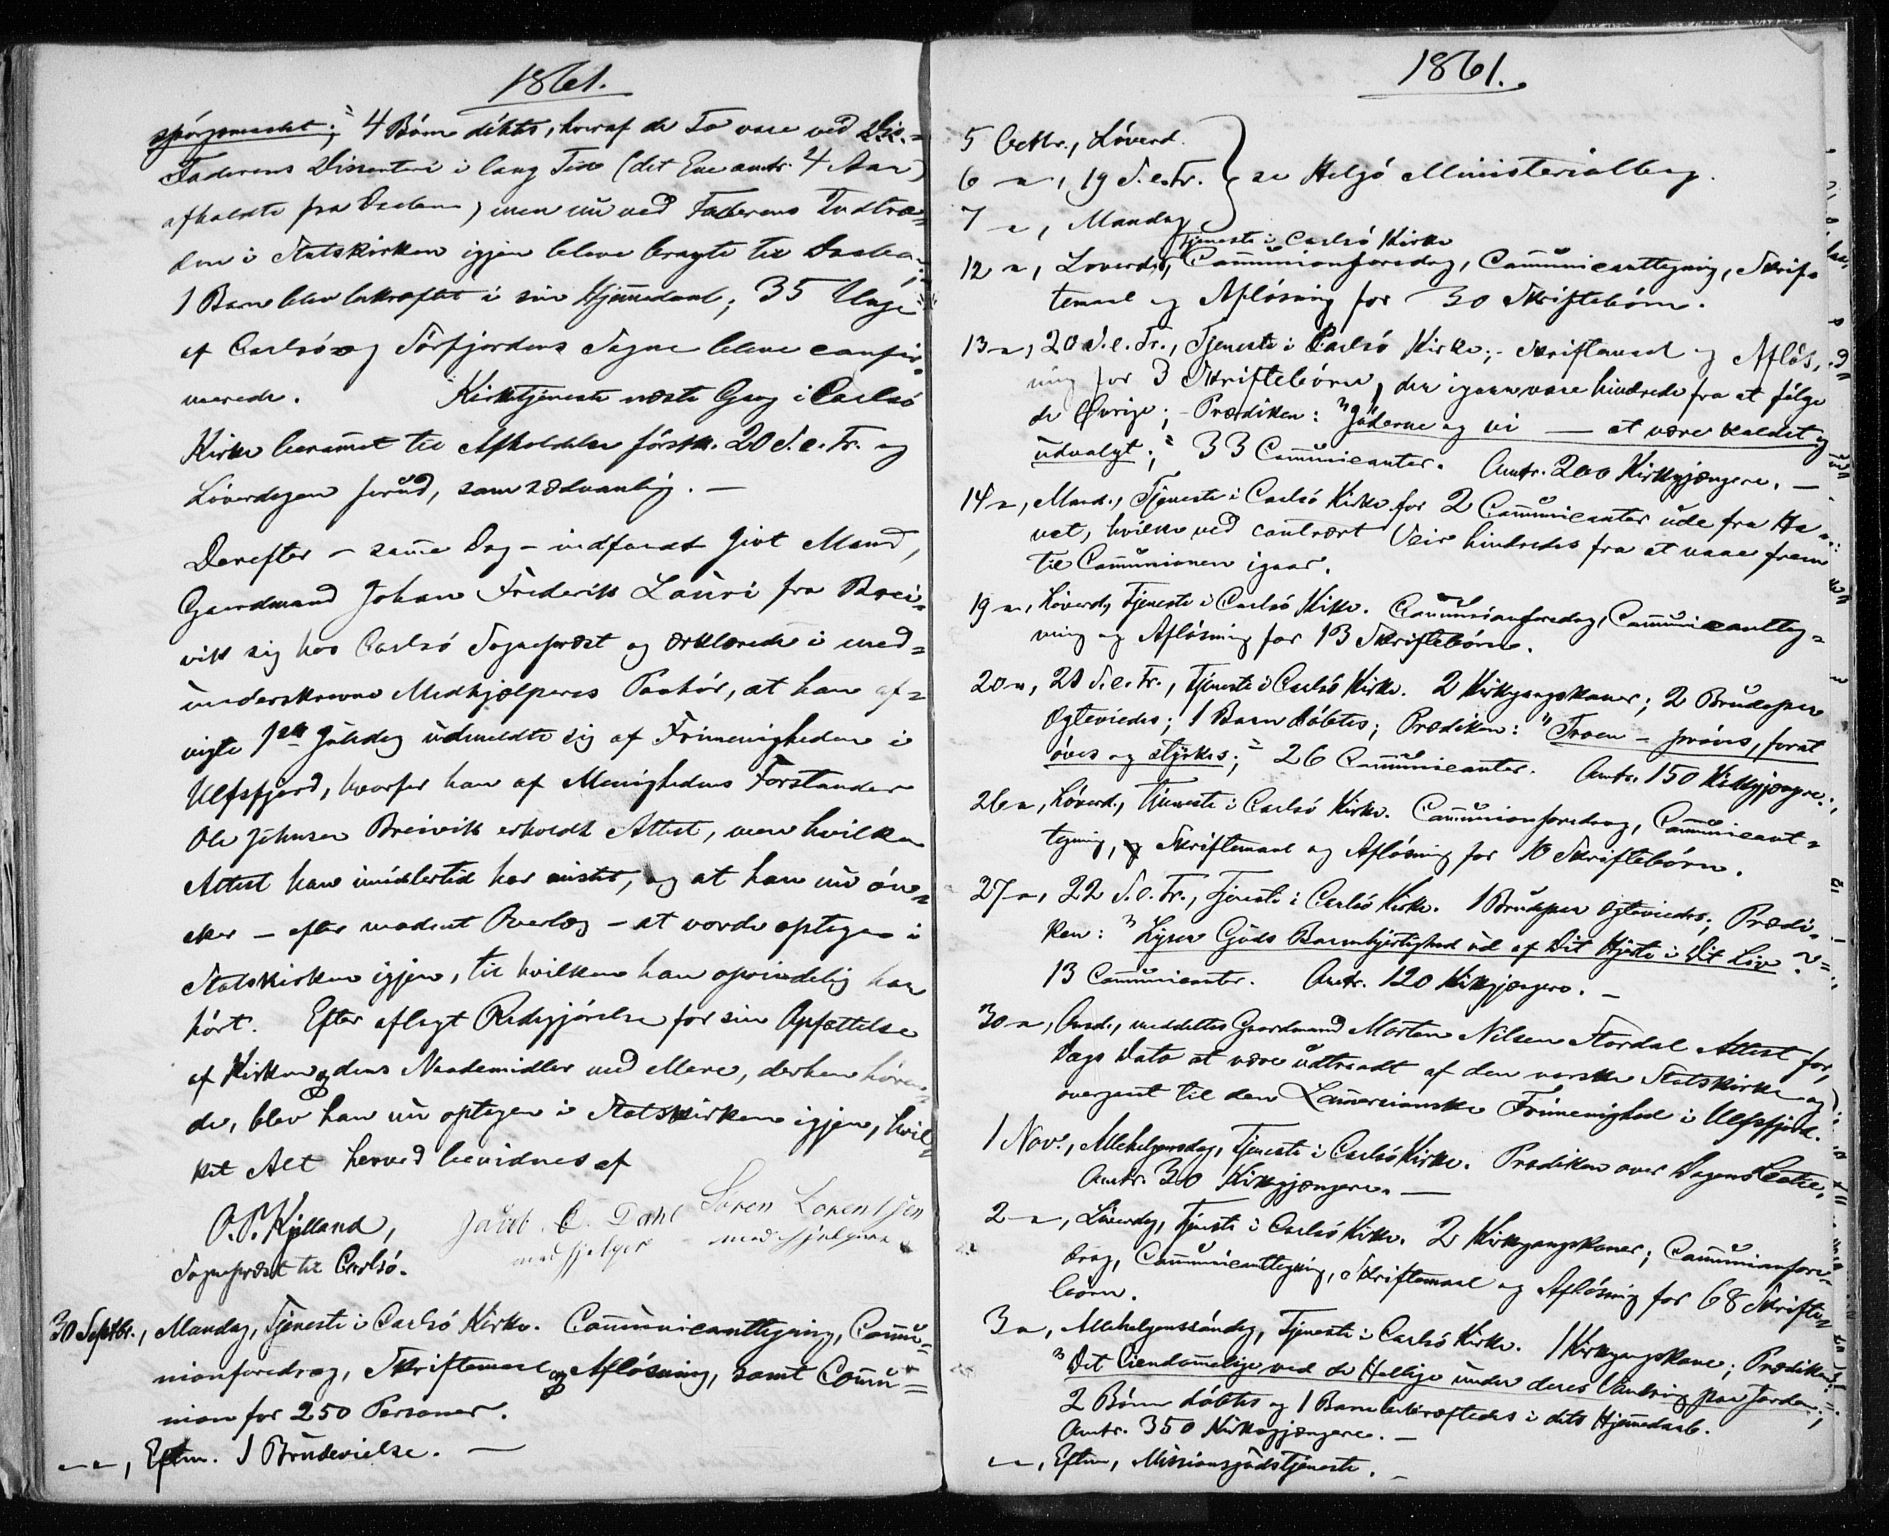 1861.
spörgsmaalet; " 4 Börn döbtes, hvoraf de To vare ved
Faderens Dissenteri i lang Tid (det Ene omtr. 4 Aar)
afholdte fra Daaben, men nu ved Faderens Indtræ-
den i Statskirken igjen bleve bragte til Daaben;
1 Barn blev bekræftet i sin Hjemmedaab; 35 Unge
af Carlsö og Sörfjordens Sogne bleve confir-
merede. Kirketjeneste næste Gang i Carlsö
Kirke berammet til Afholdelse förstk. 20 S. e. Tr. og
Löverdagen forud, som sædvanlig. —
Derefter – samme Dag – indfandt givt Mand,
Gaardmand Johan Frederik Lauri fra Brei-
vik sig hos Carlsö Sognepræst og erklærede i med-
underskrevne Medhjælperes Paahör, at han af-
vigte 1ste Juledag udmeldte sig af Frimenigheden i
Ulfsfjord, hvorfor han af Menighedens Forstander
Ole Johnsen Breivik erholdt Attest, men hvilken
Attest han imidlertid har mistet, og at han nu ön-
sker – efter modent Overlæg – at vorde optagen i
Statskirken igjen, til hvilken han oprindelig har
hört. Efter aflagt Redegjörelse for sin Opfattelse
af Kirken og dens Naademidler med Mere, derhen hören-
de, blev han nu optagen i Statskirken igjen, hvil-
ket Alt herved bevidnes af
O. P. Kjelland, Jacob C. Dahl Sören Lorentsen
Sognepræst til Carlsö. medhjelper medhjelper
30 Septbr., Mandag, Tjeneste i Carlsö Kirke. Communicanttegning, Commu-
nionforedrag, Skriftemaal og Aflösning, samt Commu-
nion for 250 Personer.
— , Eftm. 1 Brudevielse. —
1861.
5 Octbr., Löverd.
6 — , 19 S. e. Tr. } se Helgö Ministerialbog.
7 — , Mandag
Tjeneste i Carlsö Kirke
12 — , Loverdag, Communionforedrag, Communicanttegning, Skrif-
temaal og Aflösning for 30 Skriftebörn.
13 — , 20 S. e. Tr., Tjeneste i Carlsö Kirke; Skriftemaal og Aflös-
ning for 3 Skriftebörn, der igaar vare hindrede fra at fölge
de Övrige; – Prædiken: "Jöderne og vi — at være kaldet og
udvalgt; " 33 Communicanter. Omtr. 200 Kirkgjængere. —
14 — , Mand., Tjeneste i Carlsö Kirke for 2 Communicanter ude fra Ha-
vet, hvilke ved contrært Veir hindredes fra at naae frem
til Communionen igaar.
19 — , Löverd., Tjeneste i Carlsö Kirke. Communionforedrag, Communicantteg-
ning og Aflösning for 13 Skriftebörn.
20 — , 21 S. e. Tr., Tjeneste i Carlsö Kirke. 2 Kirkgangskoner; 2 Brudepar
Ægteviedes; 1 Barn döbtes; Prædiken: "Troen – pröves, forat
öves og styrkes; " 26 Communicanter. Omtr. 150 Kirkgjængere.
26 — , Löverd., Tjeneste i Carlsö Kirke. Communionforedrag, Communicant-
tegning, Skriftemaal og Aflösning for 10 Skriftebörn.
27 — , 22 S. e. Tr., Tjeneste i Carlsö Kirke. 1 Brudepar Ægteviedes; Prædi-
ken: "Lyser Guds Barmhjertighed ud af Dit Hjerte i Dit Liv?"
13 Communicanter. Omtr. 120 Kirkgjængere. —
30 — , Onsd., meddeltes Gaardmand Morten Nilsen Stordal Attest for,
Dags Dato at være udtraadt af den norske Statskirke og
overgaaet til den Lammersianske Frimenighed i Ulfsfjord.
1 Nov., Allehelgensdag, Tjeneste i Carlsö Kirke. Prædiken over Dagens Lectie.
Omtr. 30 Kirkgjængere. —
2 — , Löverdag, Tjeneste i Carlsö Kirke. 2 Kirkgangskoner; Communionfore-
drag, Communicanttegning, Skriftemaal og Aflösning for 68 Skrifte-
börn.
3 — , Allehelgenssöndag, Tjeneste i Carlsö Kirke. 1 Kirkgangskone; Prædiken:
"Det Eiendommelige ved de Hellige under deres Vandring paa Jorden;"
2 Börn döbtes og 1 Barn bekræftedes i dets Hjemmedaab.
Omtr. 350 Kirkegjængere. —
— , Eftm., Missionsgudstjeneste. —